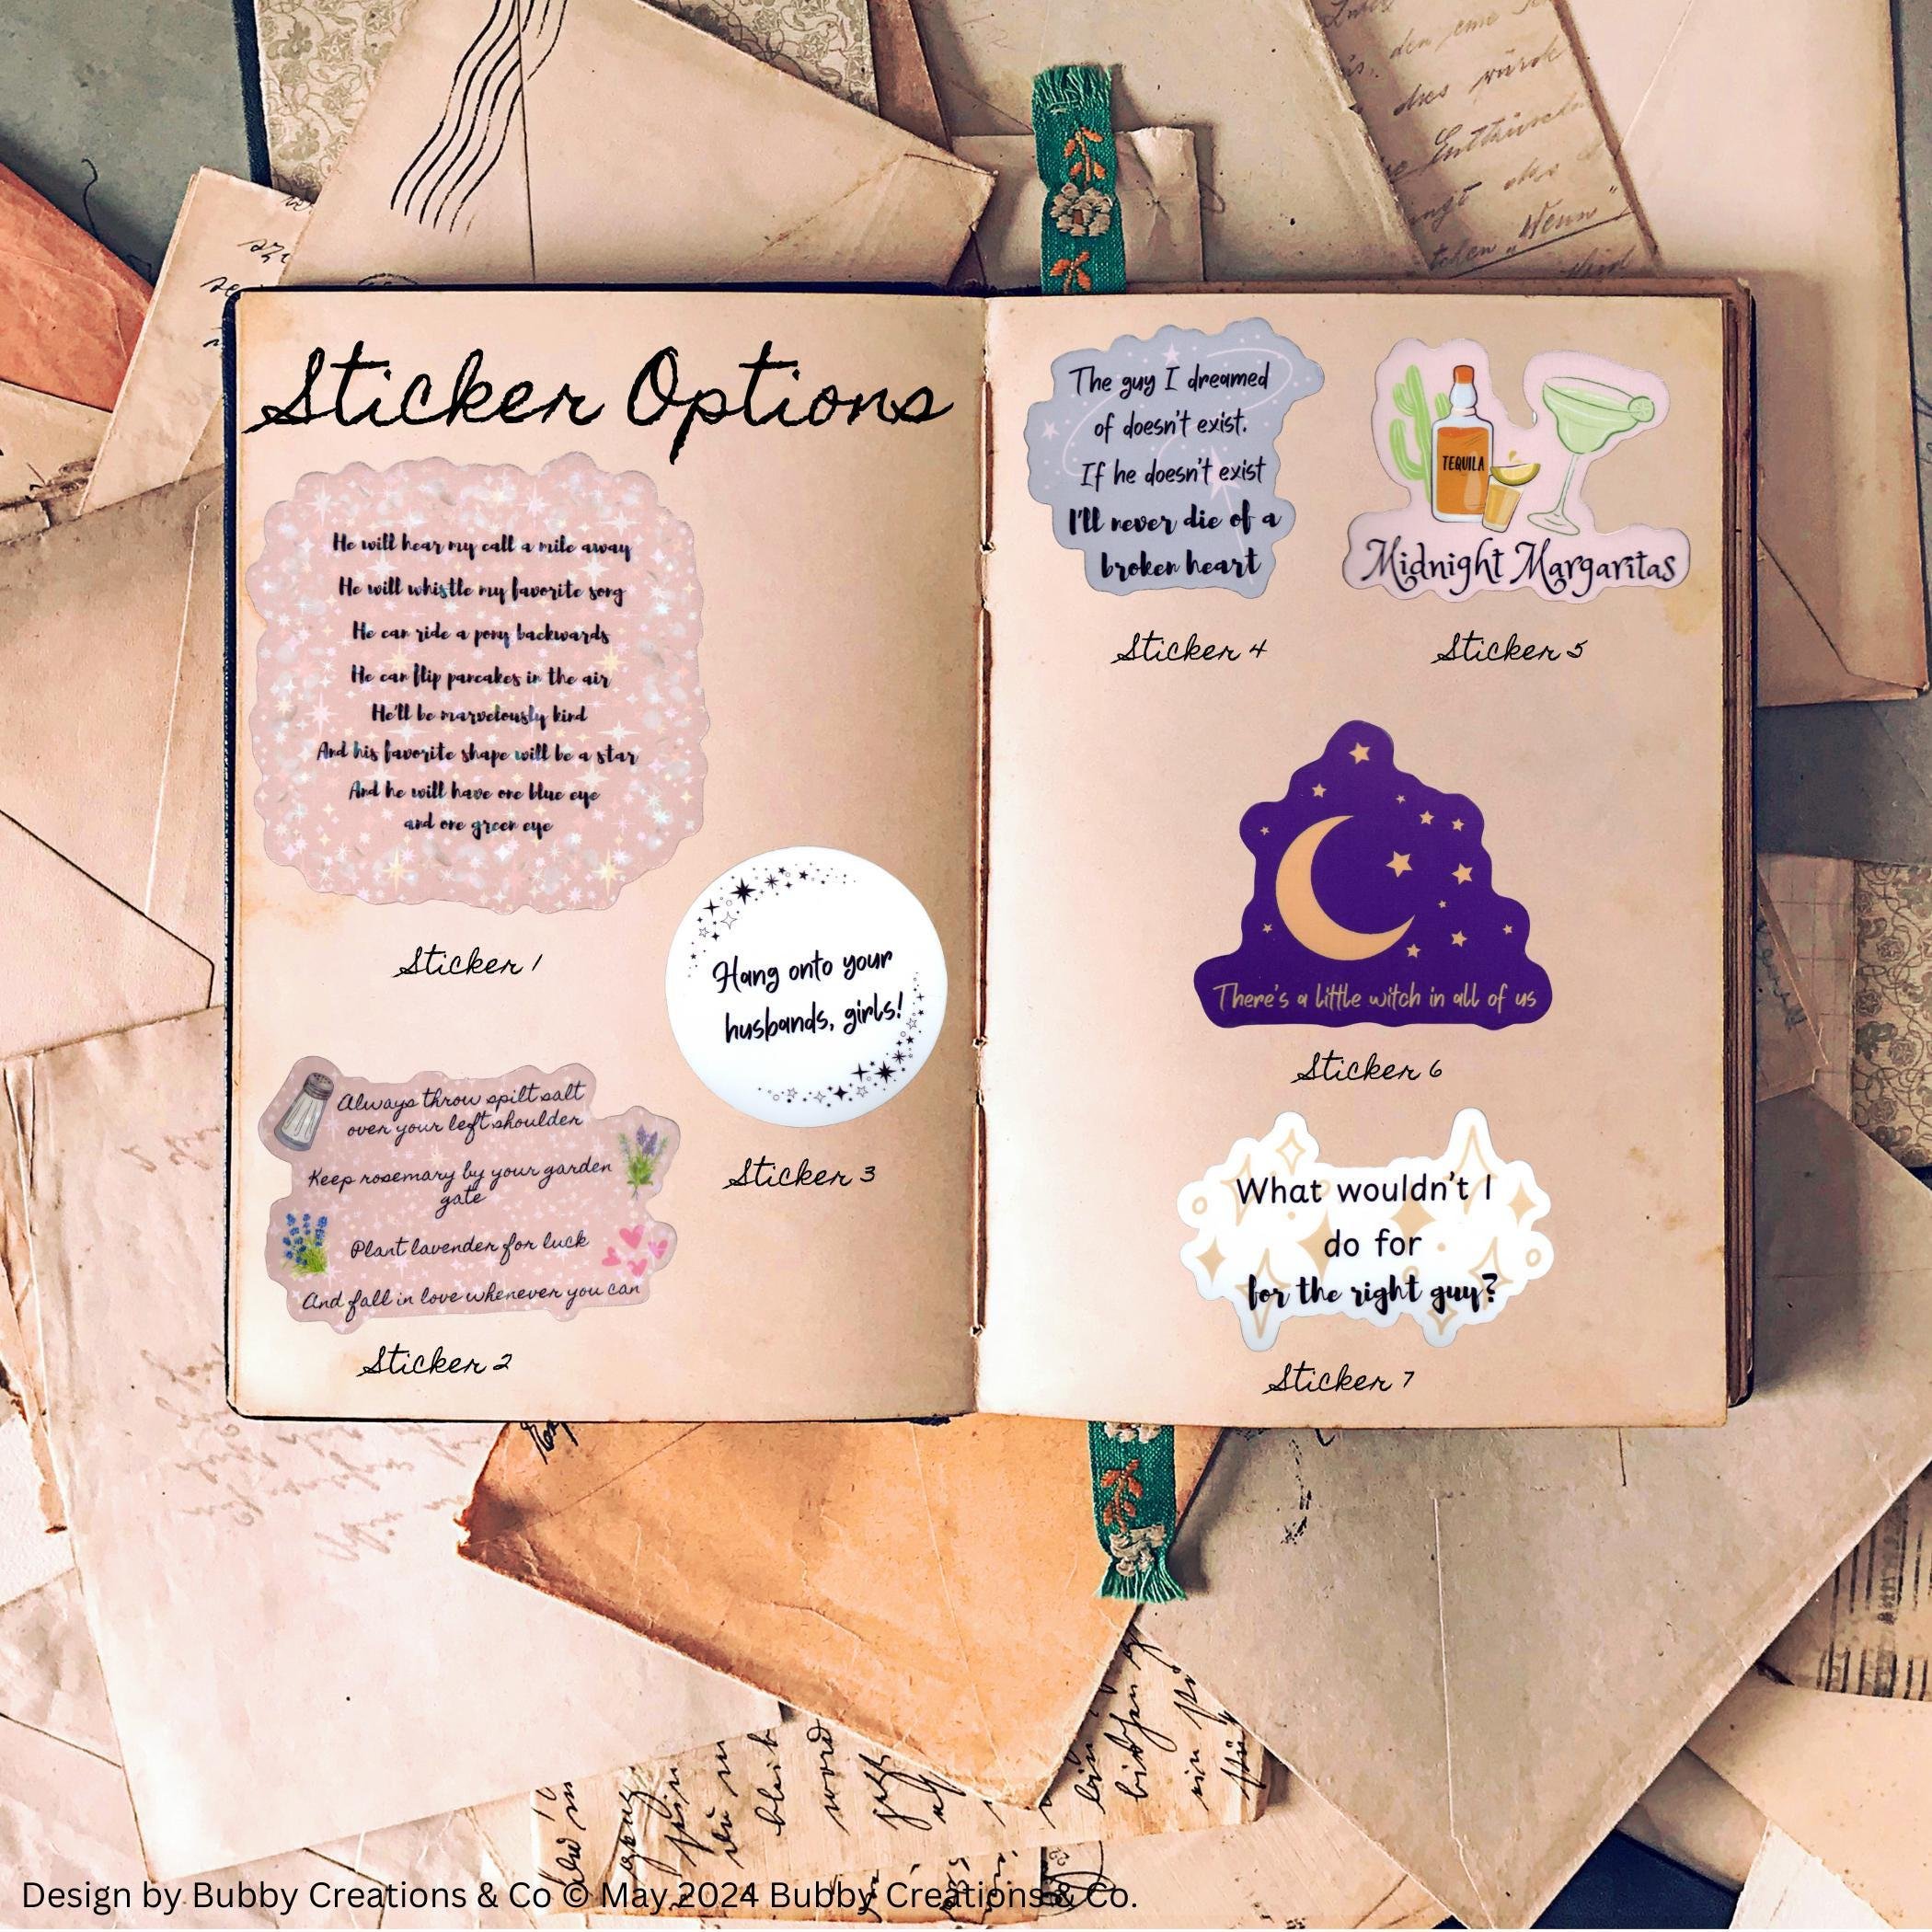 Sticker Options
He will hear my call a mile away
He will whistle my favorite song
He can ride a pony backwards
He can flip pancakes in the air
He'll be marvelously kind
And his favorite shape will be a star
And he will have one blue eye
and one green eye
Sticker 1
Always throw spilt salt
over your left shoulder
Keep rosemary by your garden
gate
Plant lavender for luck
And fall in love whenever you can
Sticker 2
Hang onto your
husbands, girls!
Sticker 3
The guy I dreamed
of doesn't exist.
If he doesn't exist
I'll never die of a
broken heart
Sticker 4
TEQUILA
Midnight Margaritas
Sticker 5
There's a little witch in all of us
Sticker 6
What wouldn't I
do for
for the right guy?
Sticker 7
den eine
dies würde
"Wenn"
bleib
word
Design by Bubby Creations & Co © May 2024 Bubby Creations & Co.